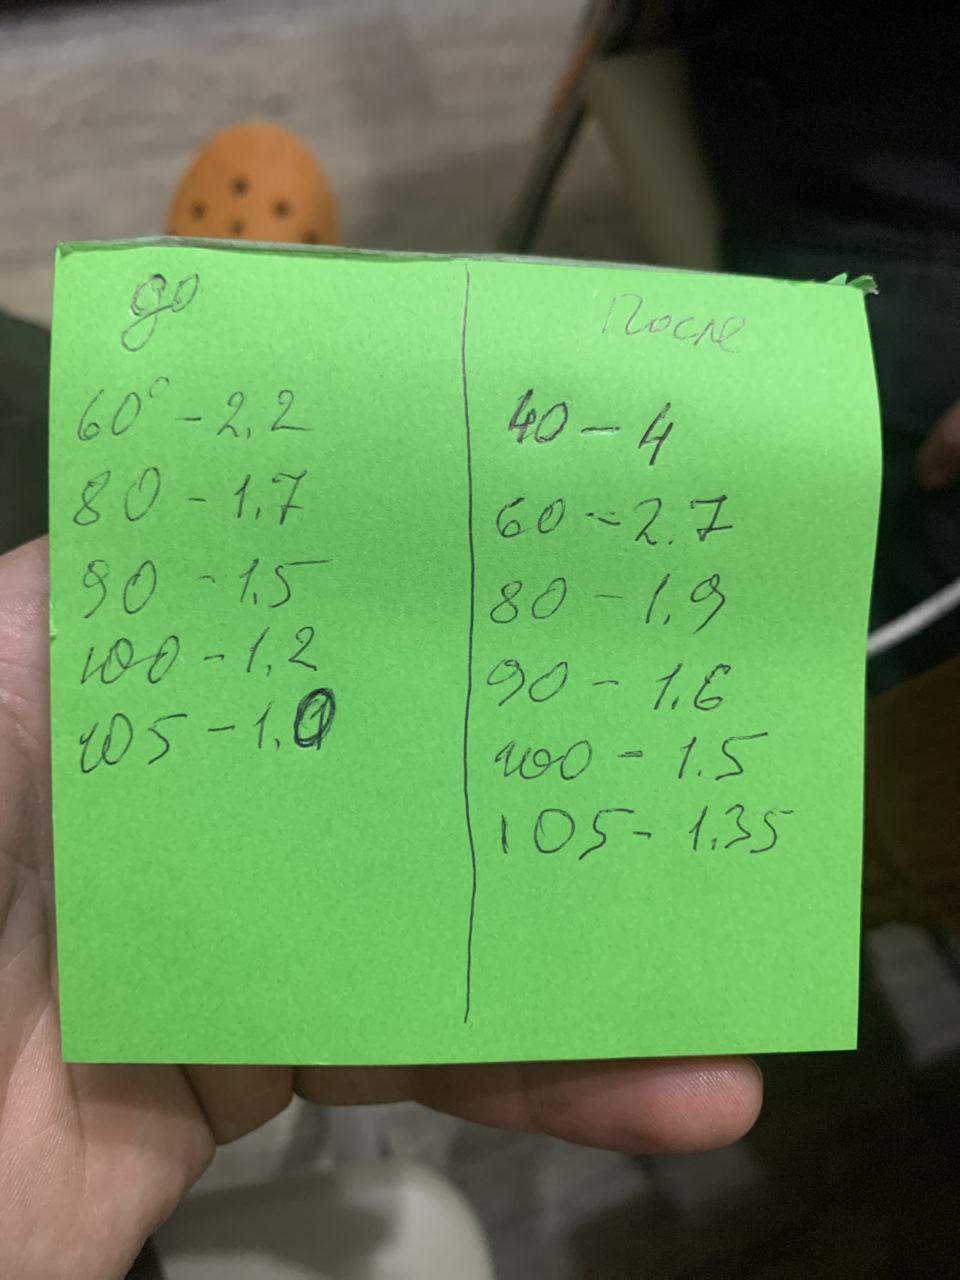 до
60° - 2,2
80 - 1,7
90 - 1,5
100 - 1,2
105 - 1.0
После
40 - 4
60 - 2.7
80 - 1,9
90 - 1,6
100 - 1.5
105 - 1.35